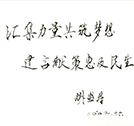 汇集力量共筑梦想
建言献策惠及民生